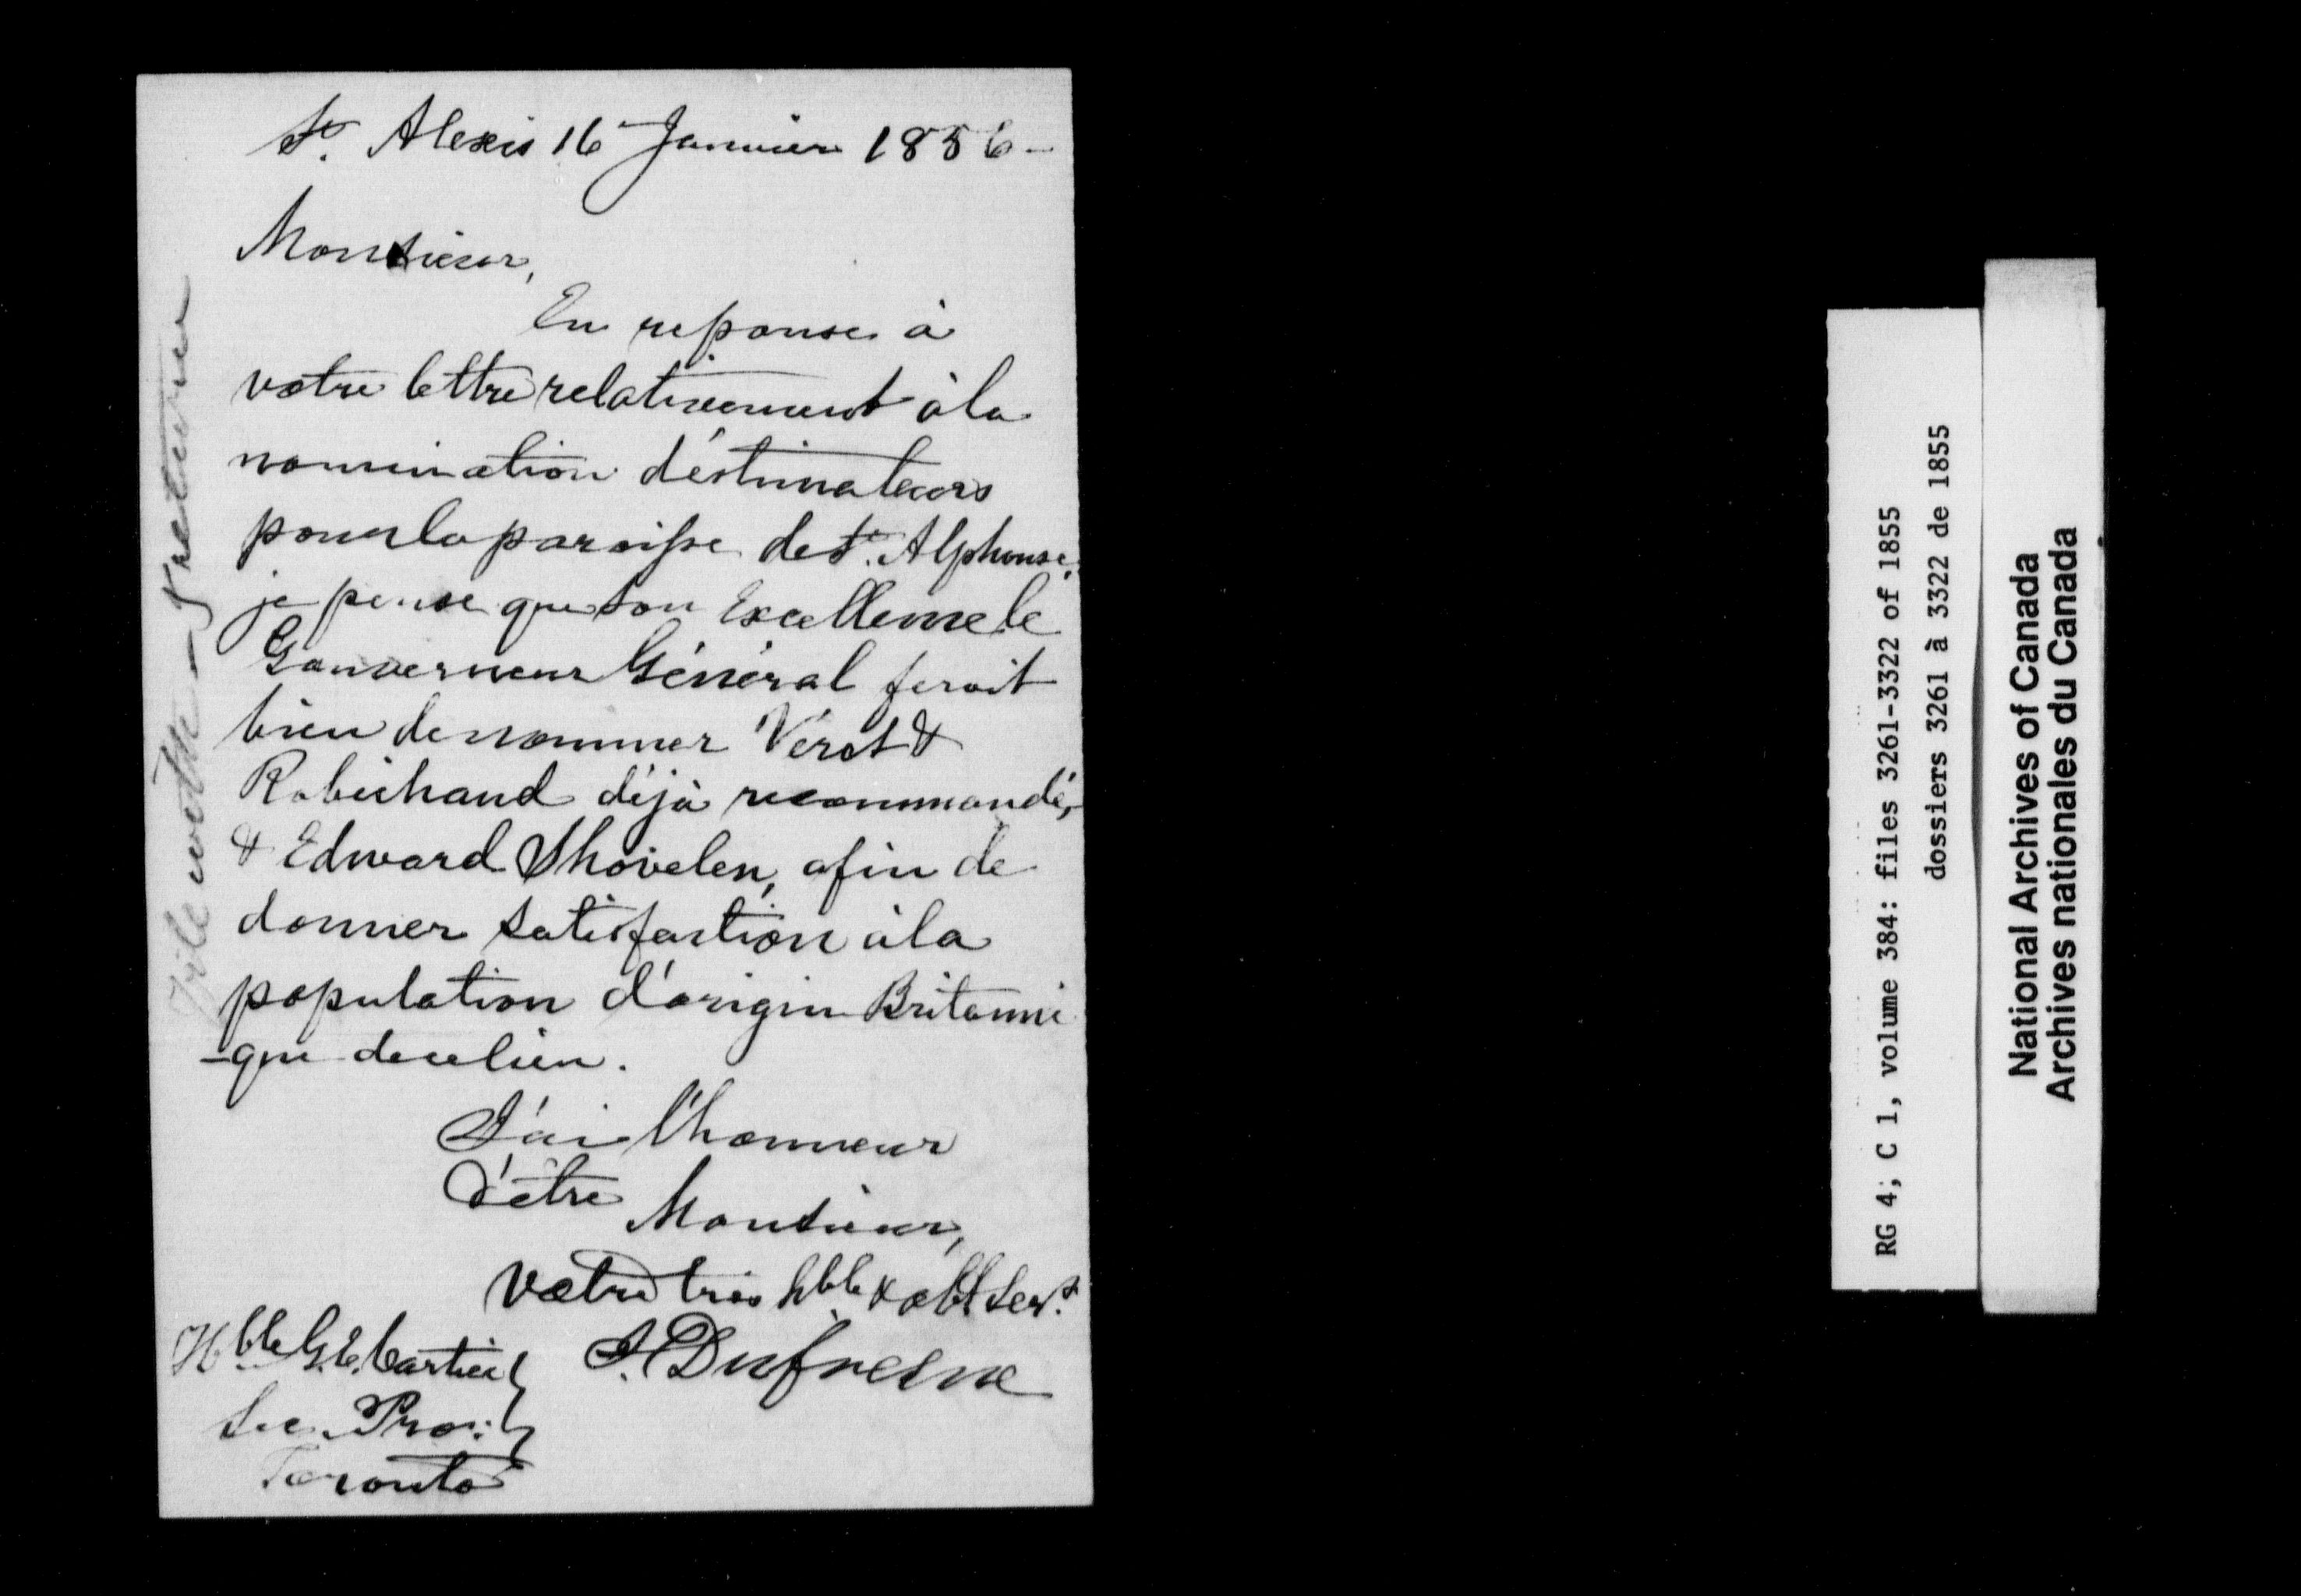 St. Alexis 16 Janvier 1856-
Monsieur,
En reponse à
votre lettre relativement à la
nomination d'éstimateurs
pour la paroisse de St. Alphonse,
je pense que Son Excellence le
Gouverneur Général feroit
bien de nommer Véret &
Robichaud déjà recommandés,
& Edward Shovelen, afin de
donner satisfaction à la
population d'origin Britanni
-que de ce lieu.
J'ai l'honneur
d'être
Monsieur,
Votre très hble & obt Servt.
J. Dufresne
Hble G. E. Cartier
Sec. Prov:
Toronto
File with
RG 4; C 1, volume 384: files 3261-3322 of 1855
dossiers 3261 à 3322 de 1855
National Archives of Canada
Archives nationales du Canada